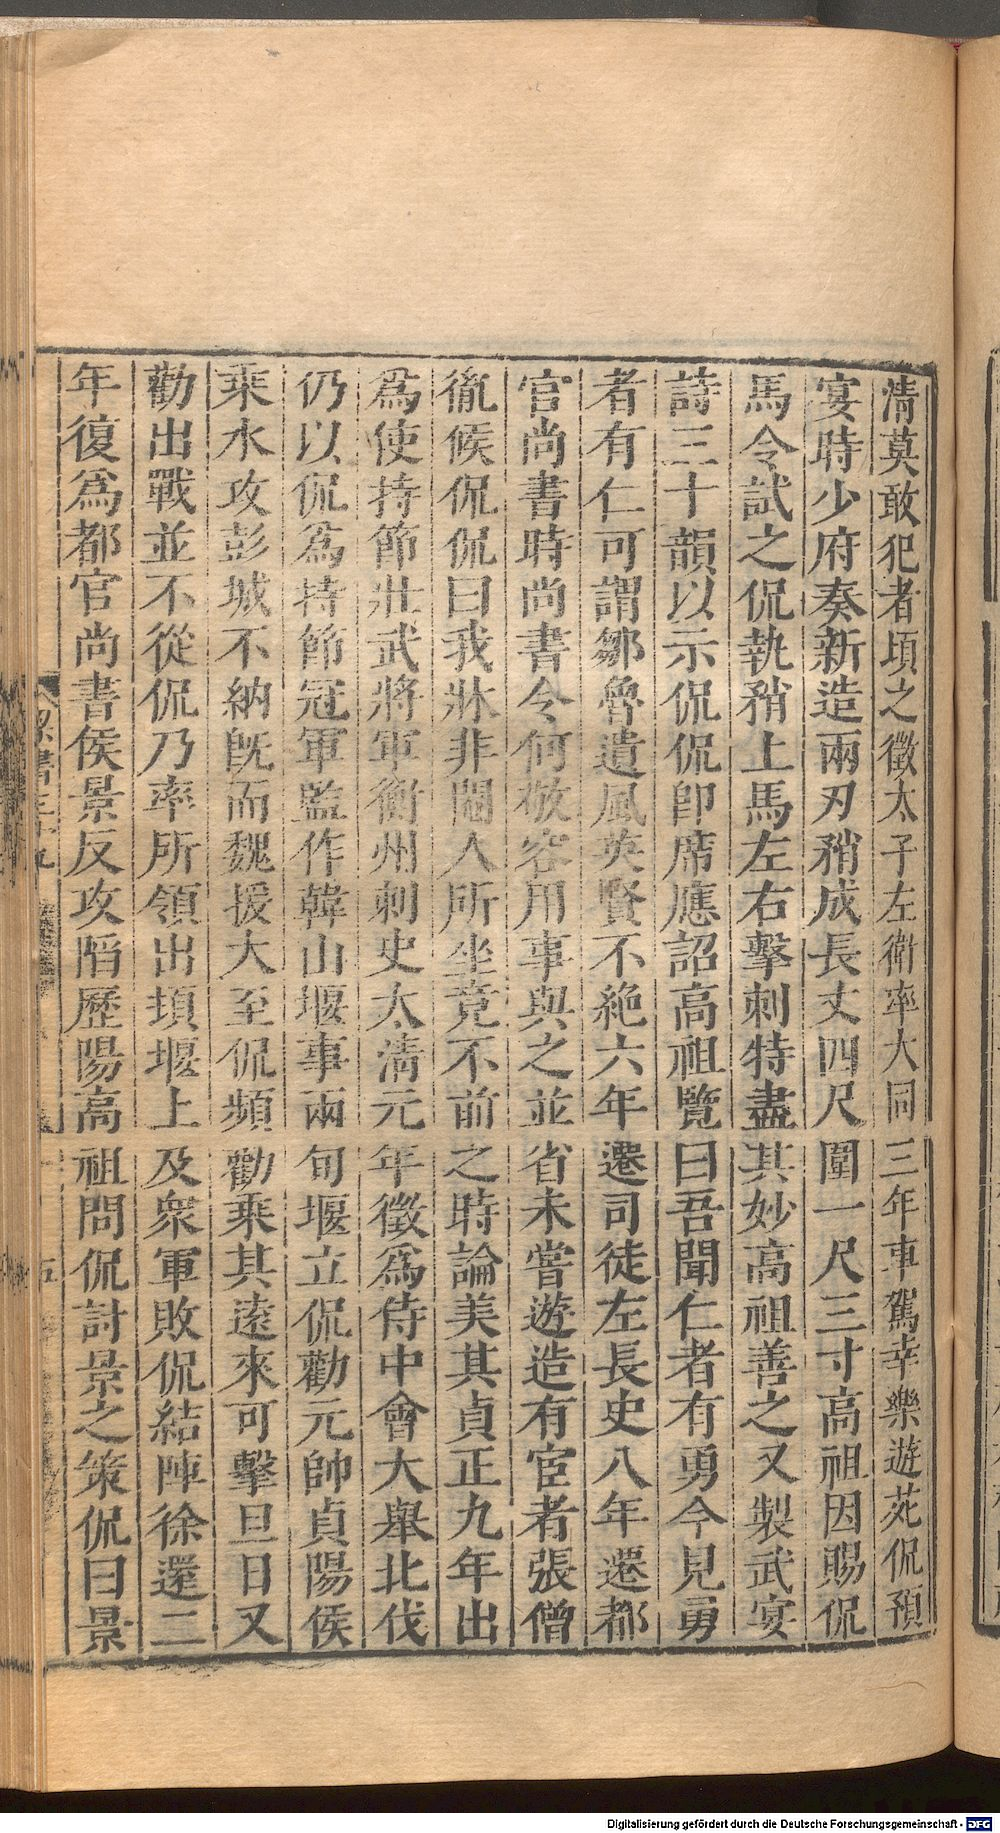 清莫敢犯者頃之徵太子左衛率大同三年車駕幸樂遊苑侃預
宴時少府奏新造兩刃矟成長丈四尺圍一尺三寸高祖因賜侃
馬令試之侃執矟上馬左右擊刺特盡其妙高祖善之又製武宴
詩三十韻以示侃侃卽席應詔高祖覽曰吾聞仁者有勇今見勇
者有仁可謂鄒魯遺風英賢不絶六年遷司徒左長史八年遷都
官尚書時尚書令何敬容用事與之並省未嘗遊造有宦者張僧
胤候侃侃曰我牀非閹人所坐竟不前之時論美其貞正九年出
爲使持節壯武將軍衡州刺史太淸元年徵爲侍中會大舉北伐
仍以侃爲持節冠軍監作韓山堰事兩旬堰立侃勸元帥貞陽侯
乘水攻彭城不納旣而魏援大至侃頻勸乘其遠來可擊旦日又
勸出戰並不從侃乃率所領出頓堰上及衆軍敗侃結陣徐還二
年復爲都官尚書侯景反攻陷歷陽高祖問侃討景之策侃曰景
梁書三十九
十五
Digitalisierung gefördert durch die Deutsche Forschungsgemeinschaft - DFG